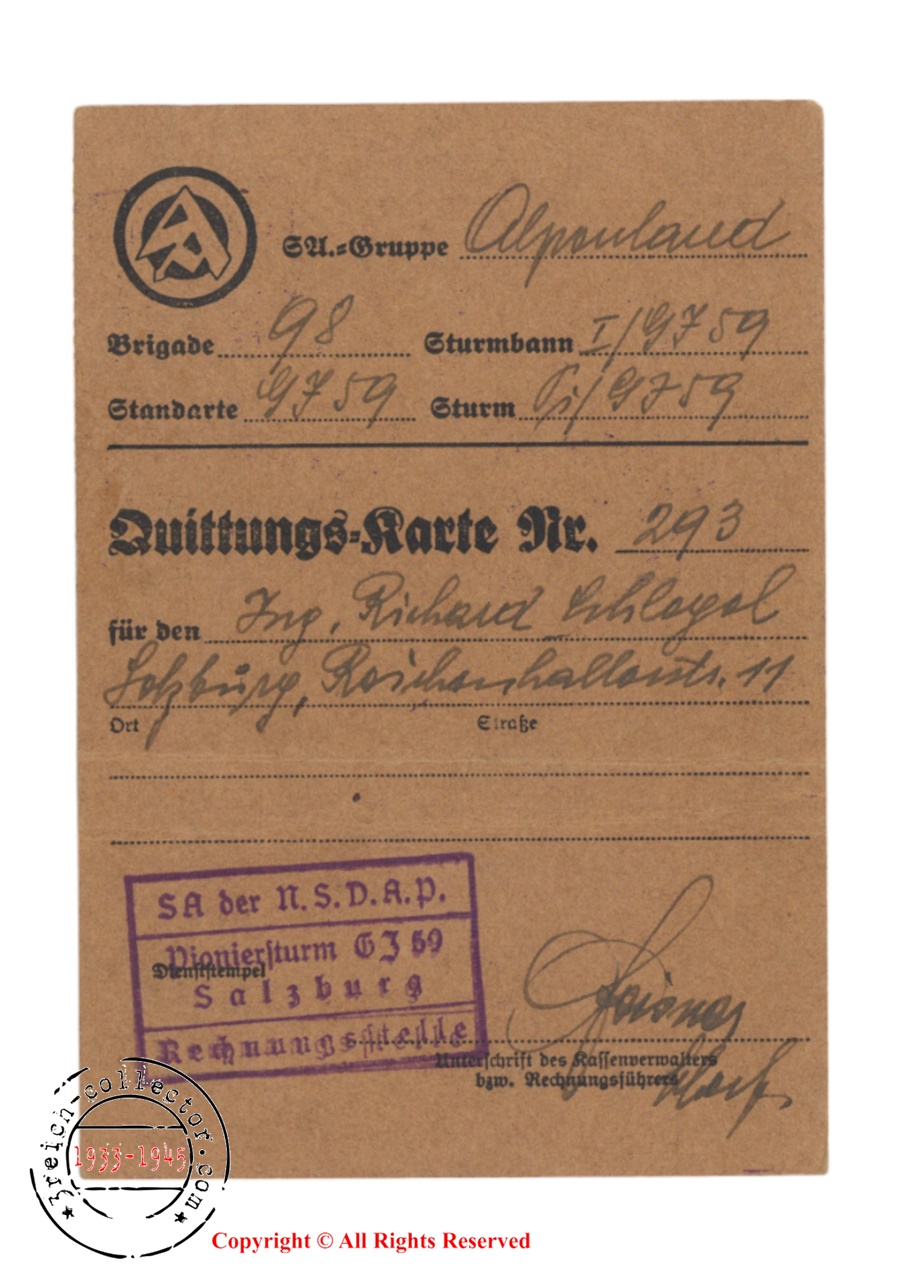 SA.-Gruppe Alpenland
Brigade 98 Sturmbann I/GJ59
Standarte GJ59 Sturm Pi/GJ59
Quittungs-Karte Nr. 293
für den Ing. Richard Schlegel
Salzburg, Reichenhallerstr. 11
Ort Straße
SA der N.S.D.A.P.
Pioniersturm GJ 59
Dienststempel
Salzburg
Rechnungsstelle
Unterschrift des Kassenverwalters
bzw. Rechnungsführers
3reich-collector.com
1933-1945
Copyright © All Rights Reserved